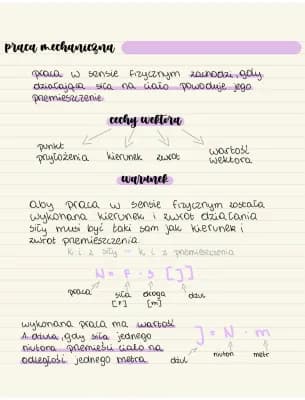 praca mechaniczna
praca w sensie fizycznym zachodzi, gdy
działająca siła na ciało powoduje jego
przemieszczenie.
cechy wektora
punkt
przyłożenia kierunek zwrot wartość
wektora
warunek
aby praca w sensie fizycznym została
wykonana kierunek i zwrot działania
siły musi być taki sam jak kierunek i
zwrot przemieszczenia.
k i z siły = k i z przemieszczenia
W = F · s [J]
praca siła droga dżul
[F] [m]
wykonana praca ma wartość
1 dżula, gdy siła jednego
niutona przemieści ciało na
odległość jednego metra.
J = N · m
dżul niuton metr